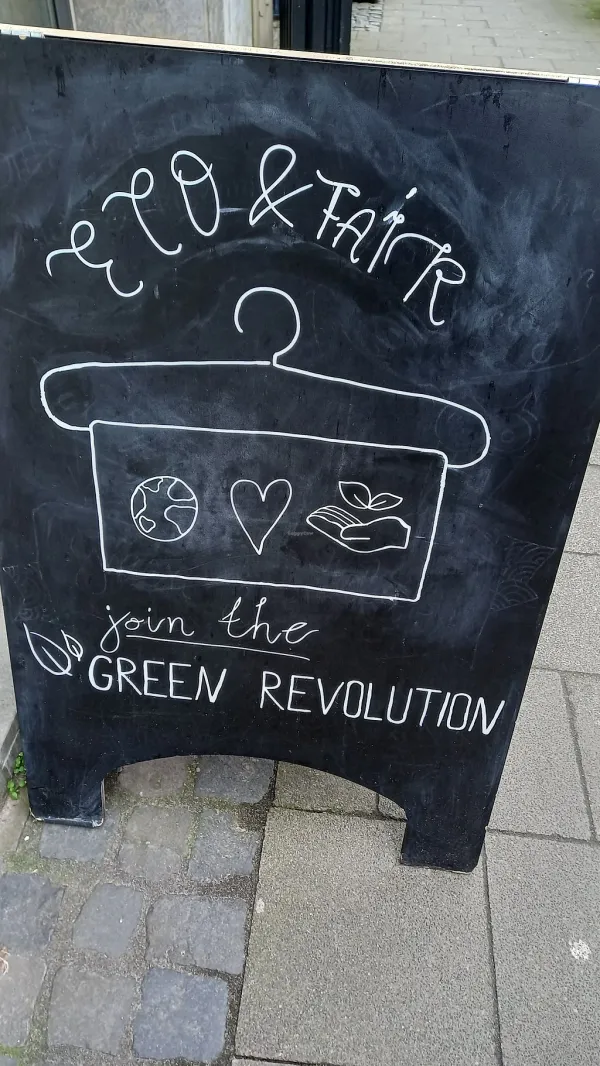 ECO & FAiR
join the
GREEN REVOLUTION